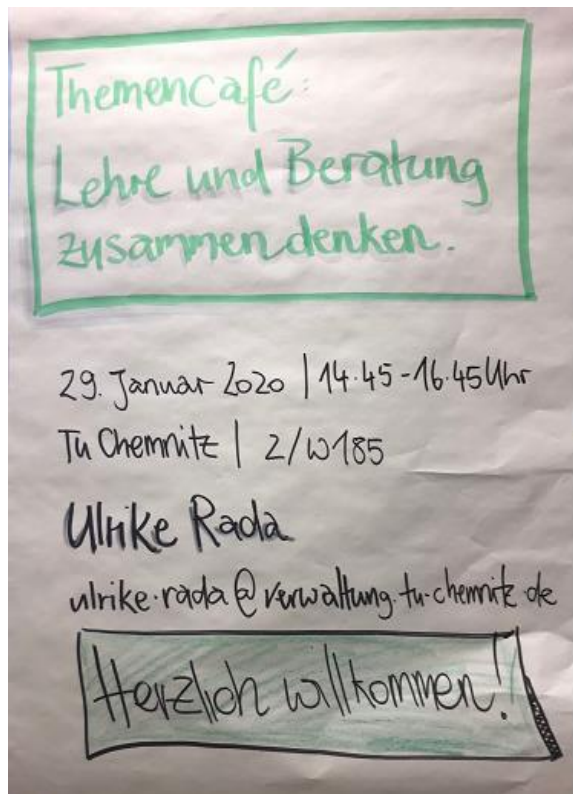 Themencafé:
Lehre und Beratung
zusammen denken.
29. Januar 2020 | 14.45-16.45 Uhr
TU Chemnitz | 2/W185
Ulrike Rada
ulrike.rada@verwaltung.tu-chemnitz.de
Herzlich willkommen!